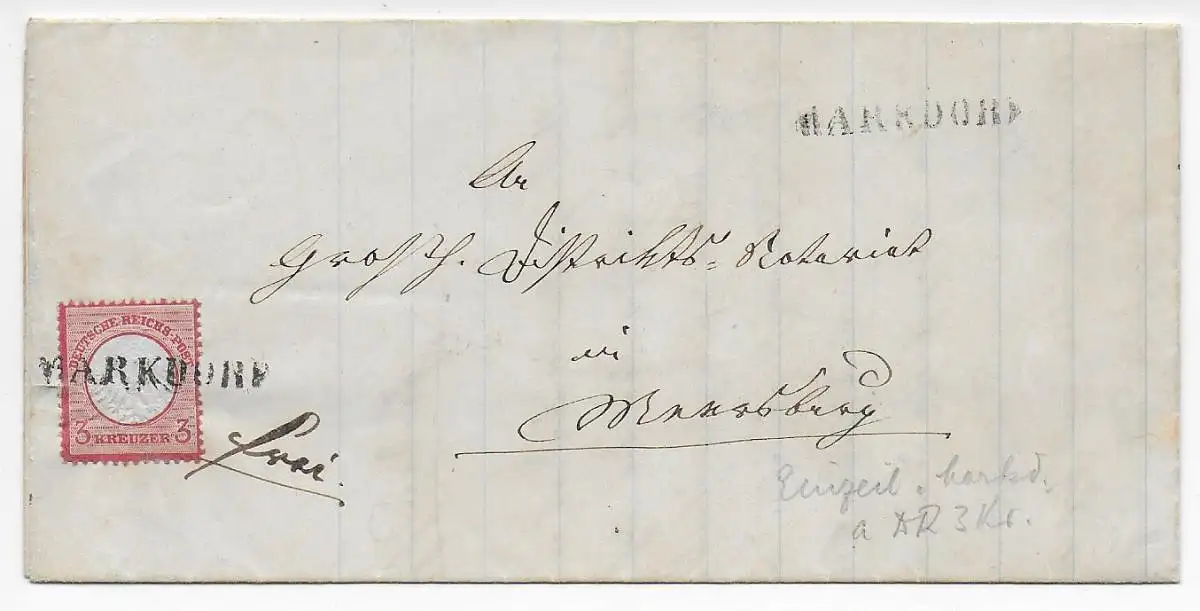 MARKDORF
An
Großh. Distrikts-Notariat
in
Meersburg
DEUTSCHE REICHS-POST
3 KREUZER 3
MARKDORF
frei.
Einzeil. Markd.
a DR 3 Kr.